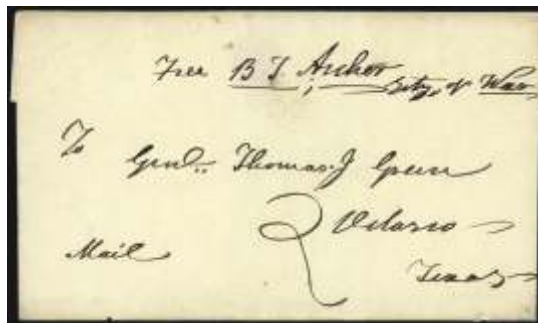 Free B T Archer Secty of War
To
Genl. Thomas J Green
Velasco
Mail
Texas